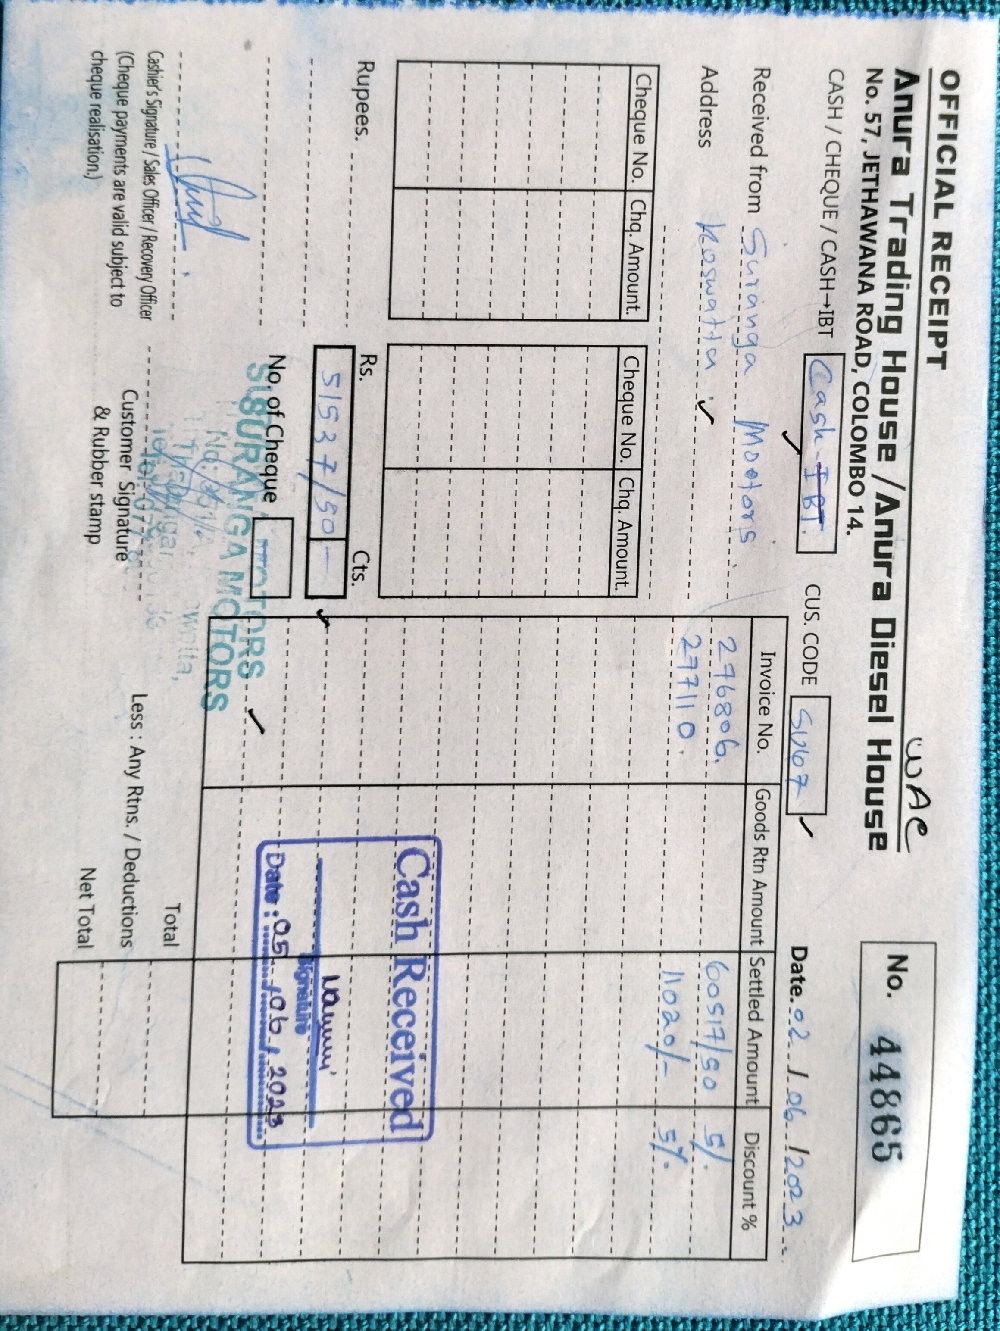 OFFICIAL RECEIPT
WAC
Anura Trading House / Anura Diesel House
No. 57, JETHAWANA ROAD, COLOMBO 14.
No. 44865
CASH / CHEQUE / CASH→IBT Cash-IBT. CUS. CODE SU67 Date. 02 / 06 / 2023
Received from Suranga Mootors
Address Koswatta.
Cheque No. Chq. Amount. Cheque No. Chq. Amount.
Invoice No. Goods Rtn Amount Settled Amount Discount %
276806. 60517/50 5%.
277110. 11020/- 5%.
Rupees. Rs. Cts.
51537/50-
No. of Cheque
SURANGA MOTORS
Cash Received
Signature
Date : 05 / 06 / 2023
Total
Less : Any Rtns. / Deductions
Net Total
Cashier's Signature / Sales Officer / Recovery Officer
(Cheque payments are valid subject to
cheque realisation.)
Customer Signature
& Rubber stamp